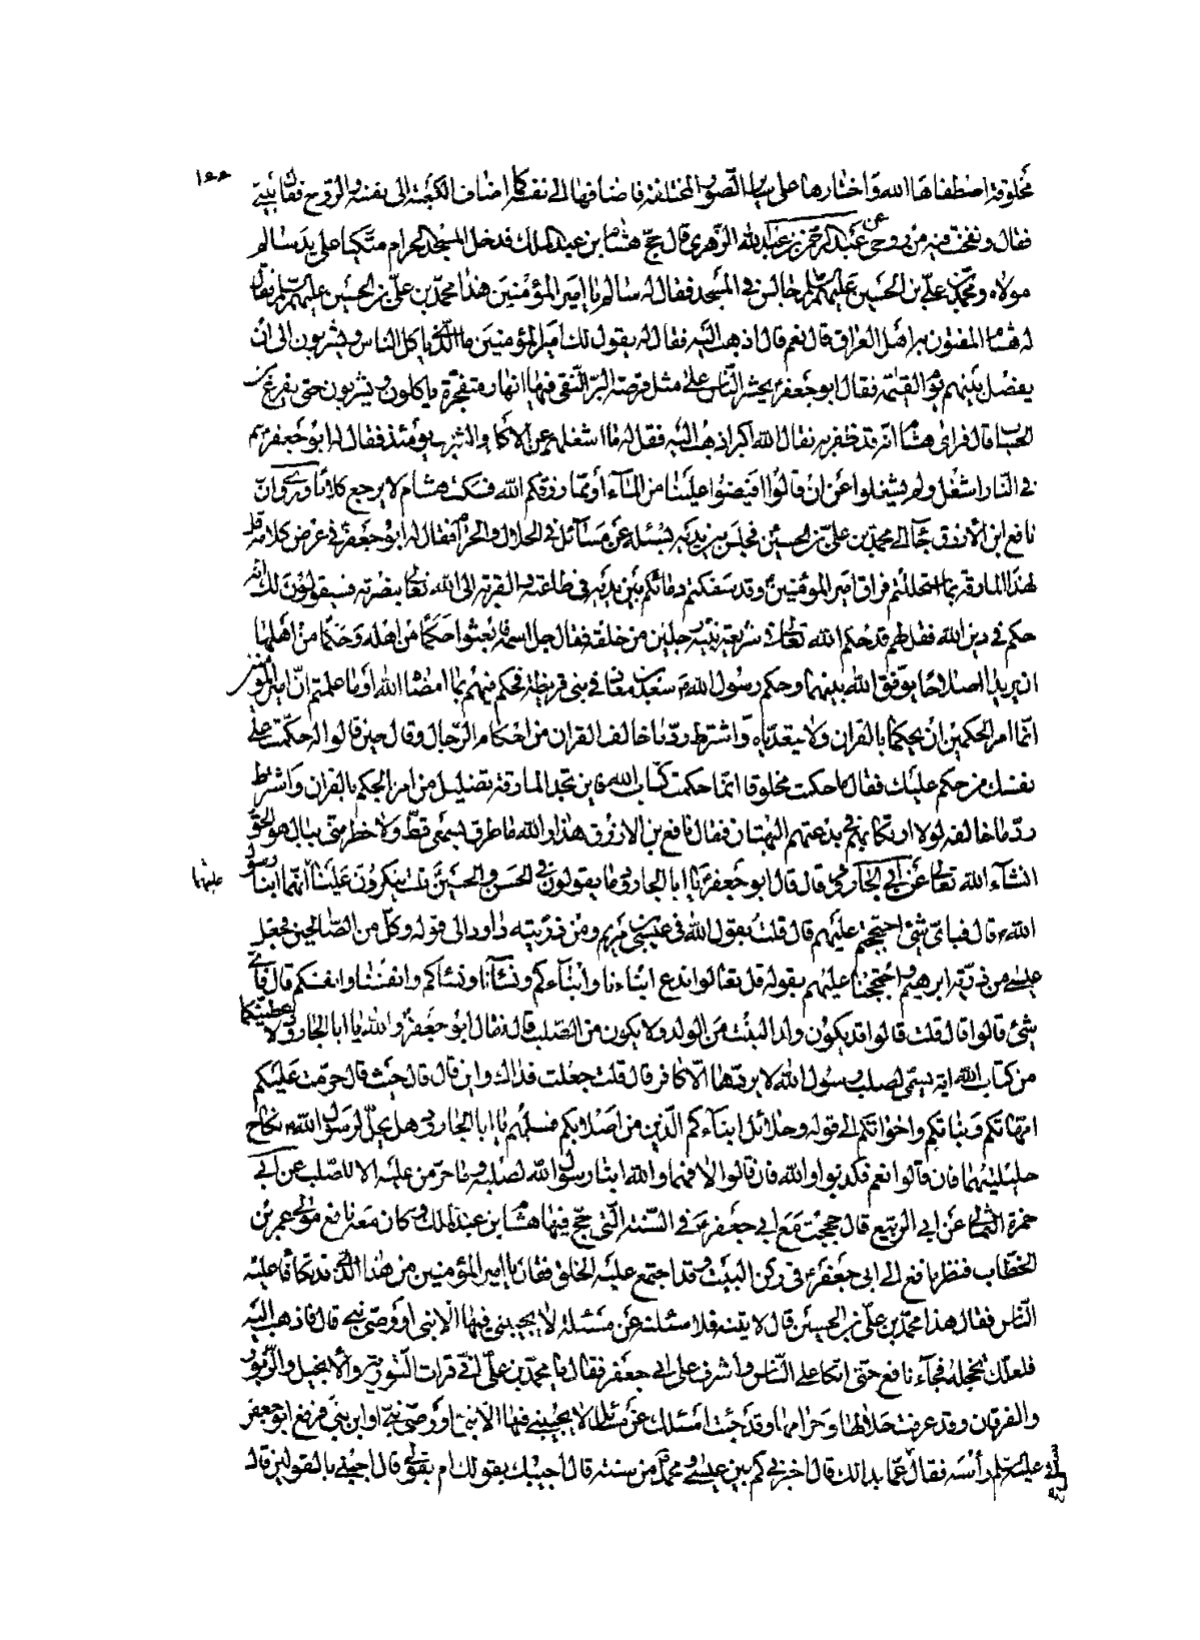 ١٤٤
مخلوقة اصطفاها الله واختارها على ساير الصور المختلفة فاضافها الى نفسه كما اضاف الكعبة الى نفسه والروح فقال بيتي
فقال ونفخت فيه من روحي عن عبد الرحمن بن عبد الله الزهري قال حج هشام بن عبد الملك فدخل المسجد الحرام متكيا على يد سالم
مولاه ومحمد بن علي بن الحسين عليهم السلم جالس في المسجد فقال له سالم يا امير المؤمنين هذا محمد بن علي بن الحسين عليهم السلم فقال
له هشام المفتون به اهل العراق قال نعم قال اذهب اليه فقال له يقول لك امير المؤمنين ما الذي ياكل الناس ويشربون الى ان
يفصل بينهم يوم القيمة فقال ابو جعفر يحشر الناس على مثل قرصة البر النقي فيها انهار متفجرة ياكلون ويشربون حتى يفرغ من
الحساب قال فراى هشام انه قد ظفر به فقال الله اكبر اذهب اليه فقل له ما اشغلهم عن الاكل والشرب يومئذ فقال له ابو جعفر هم
في النار اشغل ولم يشغلوا عن ان قالوا افيضوا علينا من الماء او مما رزقكم الله فسكت هشام لا يرجع كلاما وروي ان
نافع ابن الازرق جاء الى محمد بن علي بن الحسين فجلس بين يديه يسئله عن مسائل في الحلال والحرام فقال له ابو جعفر في عرض كلامه قل
لهذا المارقة بما استحللتم فراق امير المؤمنين وقد سفكتم دمائكم بين يديه في طاعته والقربة الى الله تعالى بنصرته فسيقولون لك انه
حكم في دين الله فقل لهم قد حكم الله تعالى في شريعة نبيه رجلين من خلقه فقال جل اسمه فابعثوا حكما من اهله وحكما من اهلها
ان يريدا اصلاحا يوفق الله بينهما وحكم رسول الله ص سعد بن معاذ في بني قريظة فحكم فيهم بما امضاه الله اوما علمتم ان امير المؤمنين
انما امر الحكمين ان يحكما بالقران ولا يتعدياه واشترط رد ما خالف القران من احكام الرجال وقال حين قالوا له حكمت على
نفسك من حكم عليك فقال ما حكمت مخلوقا انما حكمت كتاب الله فاين تجد المارقة تضليل من امر الحكم بالقران واشترط
رد ما خالفه لولا ارتكابهم في بدعتهم البهتان فقال نافع بن الازرق هذا والله ما طرق بسمعي قط ولا خطر مني ببال هو الحق
انشاء الله تعالى عن ابي الجارود قال قال ابو جعفر يا ابا الجارود ما يقولون في الحسن والحسين قلت ينكرون علينا انهما ابنا رسول
عليهما
الله ص قال فباي شئ احتججتم عليهم قال قلت بقول الله في عيسى بن مريم ومن ذريته داود الى قوله وكل من الصالحين فجعل
عيسى من ذرية ابرهيم واحتججنا عليهم بقوله قل تعالوا ندع ابناءنا وابناءكم ونساءنا ونساءكم وانفسنا وانفسكم قال فاي
شئ قالوا قال قلت قالوا قد يكون ولد البنت من الولد ولا يكون من الصلب قال فقال ابو جعفر والله يا ابا الجارود لاعطينكما
من كتاب الله اية تسمى لصلب رسول الله لا يردها الا كافر قال قلت جعلت فداك واين قال قال حيث قال حرمت عليكم
امهاتكم وبناتكم واخواتكم الى قوله وحلائل ابناءكم الذين من اصلابكم فسلهم يا ابا الجارود هل يحل لرسول الله ص نكاح
حليلتيهما فان قالوا نعم فكذبوا والله فان قالوا لا فهما والله ابنا رسول الله لصلبه وما حرمن عليه الا للصلب عن ابي
حمزة الثمالي عن ابي الربيع قال حججت مع ابي جعفر ع في السنة التي حج فيها هشام بن عبد الملك وكان معه نافع مولى عمر بن
الخطاب فنظر نافع الى ابي جعفر ع في ركن البيت وقد اجتمع عليه الخلق فقال يا امير المؤمنين من هذا الذي قد تكافا عليه
الناس فقال هذا محمد بن علي بن الحسين قال لاتينه فلاسئلنه عن مسئلة لا يجيبني فيها الا نبي او وصي نبي قال فاذهب اليه
فلعلك تخجله فجاء نافع حتى اتكا على الناس واشرف على ابي جعفر فقال يا محمد بن علي اني قرات التورية والانجيل والزبور
والفرقان وقد عرفت حلالها وحرامها وقد جئت اسئلك عن مسائل لا يجيبني فيها الا نبي او وصي نبي او ابن نبي فرفع ابو جعفر
عليه السلم رأسه فقال عما بدالك قال اخبرني كم بين عيسى ومحمد ص من سنة قال اجيبك بقولك ام بقولي قال اجبني بالقولين قال